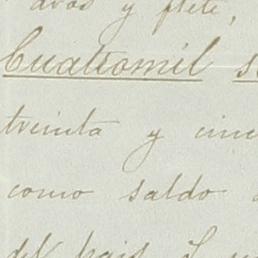 y flete,
Cuatromil s
treinta y cinc
como saldo
del pais. I